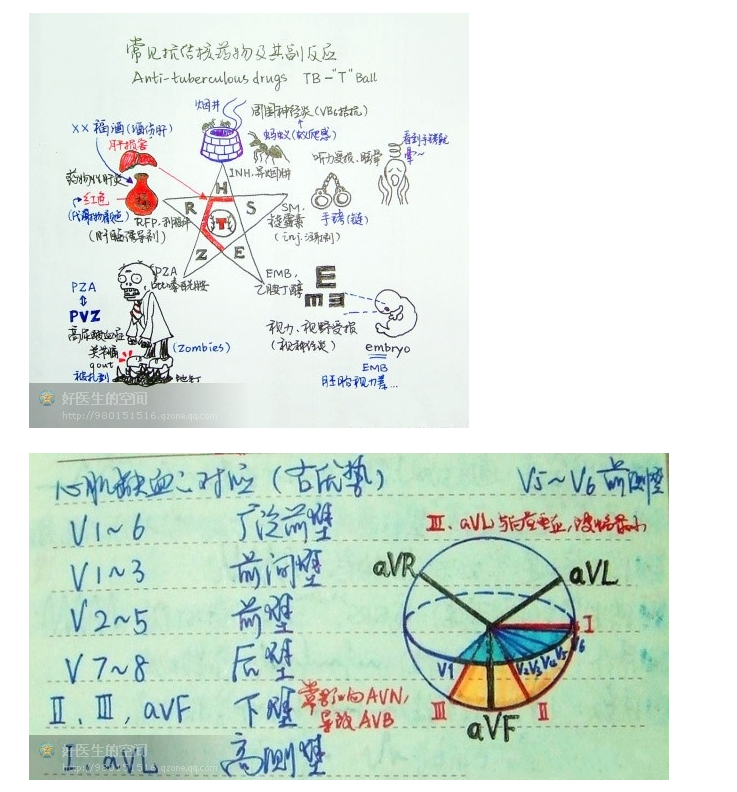 常见抗结核药物及其副反应
Anti-tuberculous drugs TB-"T" Ball
烟井
周围神经炎(VB6拮抗)
XX福酒(酒伤肝)
蚂蚁(蚁爬感)
看到手铐就晕~
肝损害
听力受损、眩晕
INH,异烟肼
药物性肝炎
H
红色
R
S
SM,
手铐(链)
(代谢物颜色)
RFP,利福平
T
链霉素
(肝酶诱导剂)
(inj.注射剂)
Z
E
PZA
吡嗪酰胺
EMB,
乙胺丁醇
E
PZA
PVZ
高尿酸血症
视力、视野受损
类羊痛
(视神经炎)
gout
(zombies)
embryo
EMB
被扎到
地钉
胚胎视力差...
好医生的空间
http://980151516.qzone.qq.com
心肌缺血
对应
V5~V6 前侧壁
V1~6 广泛前壁
V1~3 前间壁
V2~5 前壁
V7~8 后壁
II、III, aVF 下壁
常影响AVN,
导致AVB
I、aVL 高侧壁
III、aVL
aVR
aVL
I
V1
V2
V3
V4
V5
V6
III
II
aVF
好医生的空间
http://980151516.qzone.qq.com